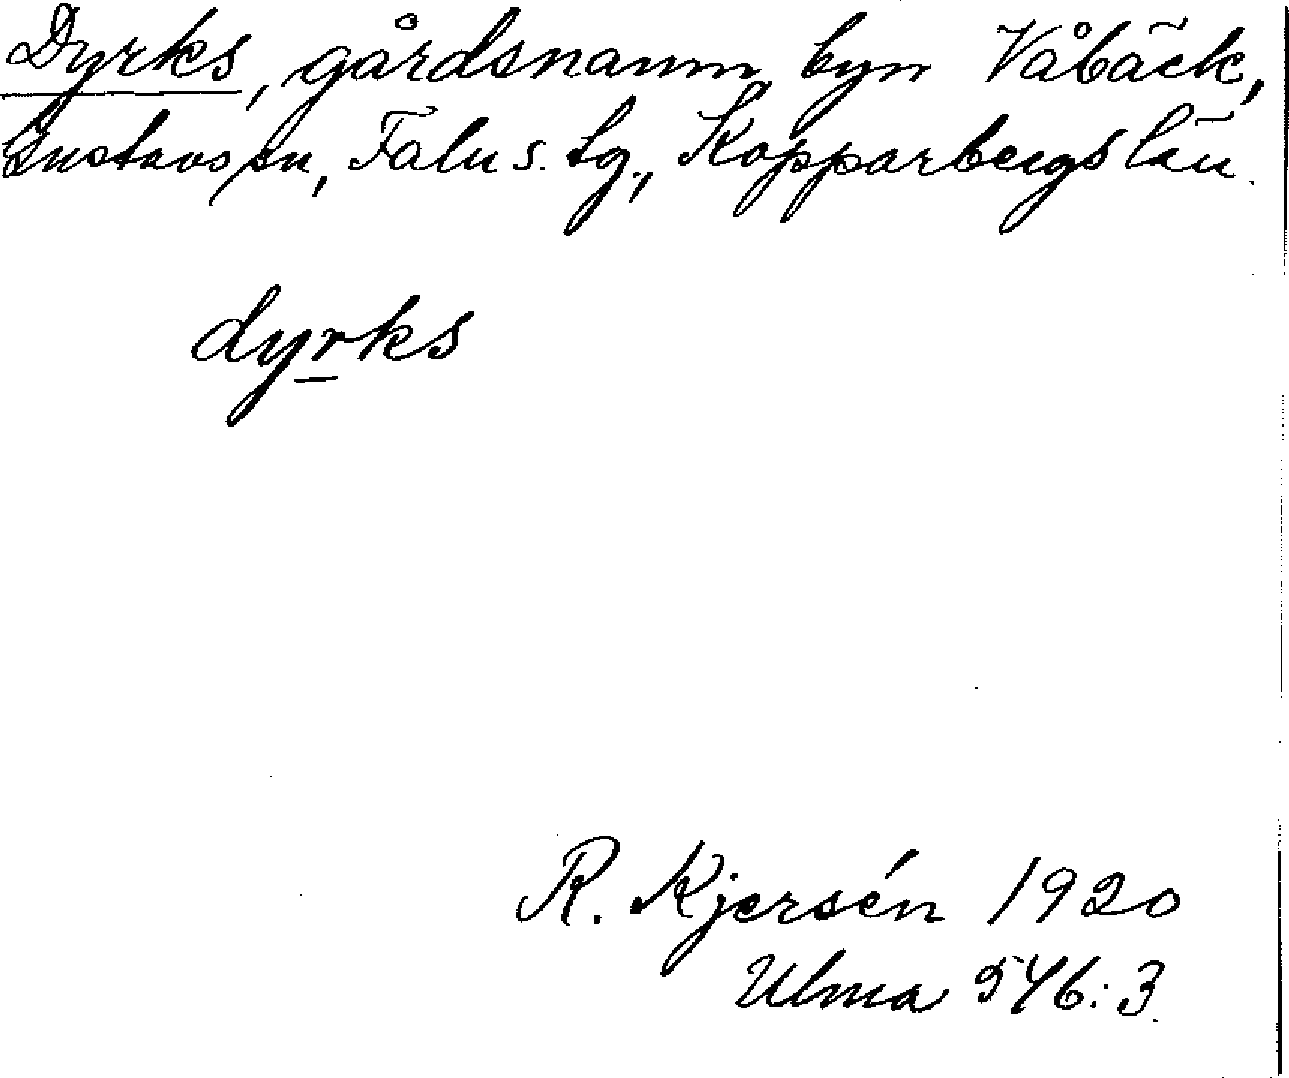 Dyrks, gårdsnamn, byn Våbäck,
Gustavs sn, Falu s. tg., Kopparbergs län.
dyrks
R. Kjersén 1920
Ulma 546:3.